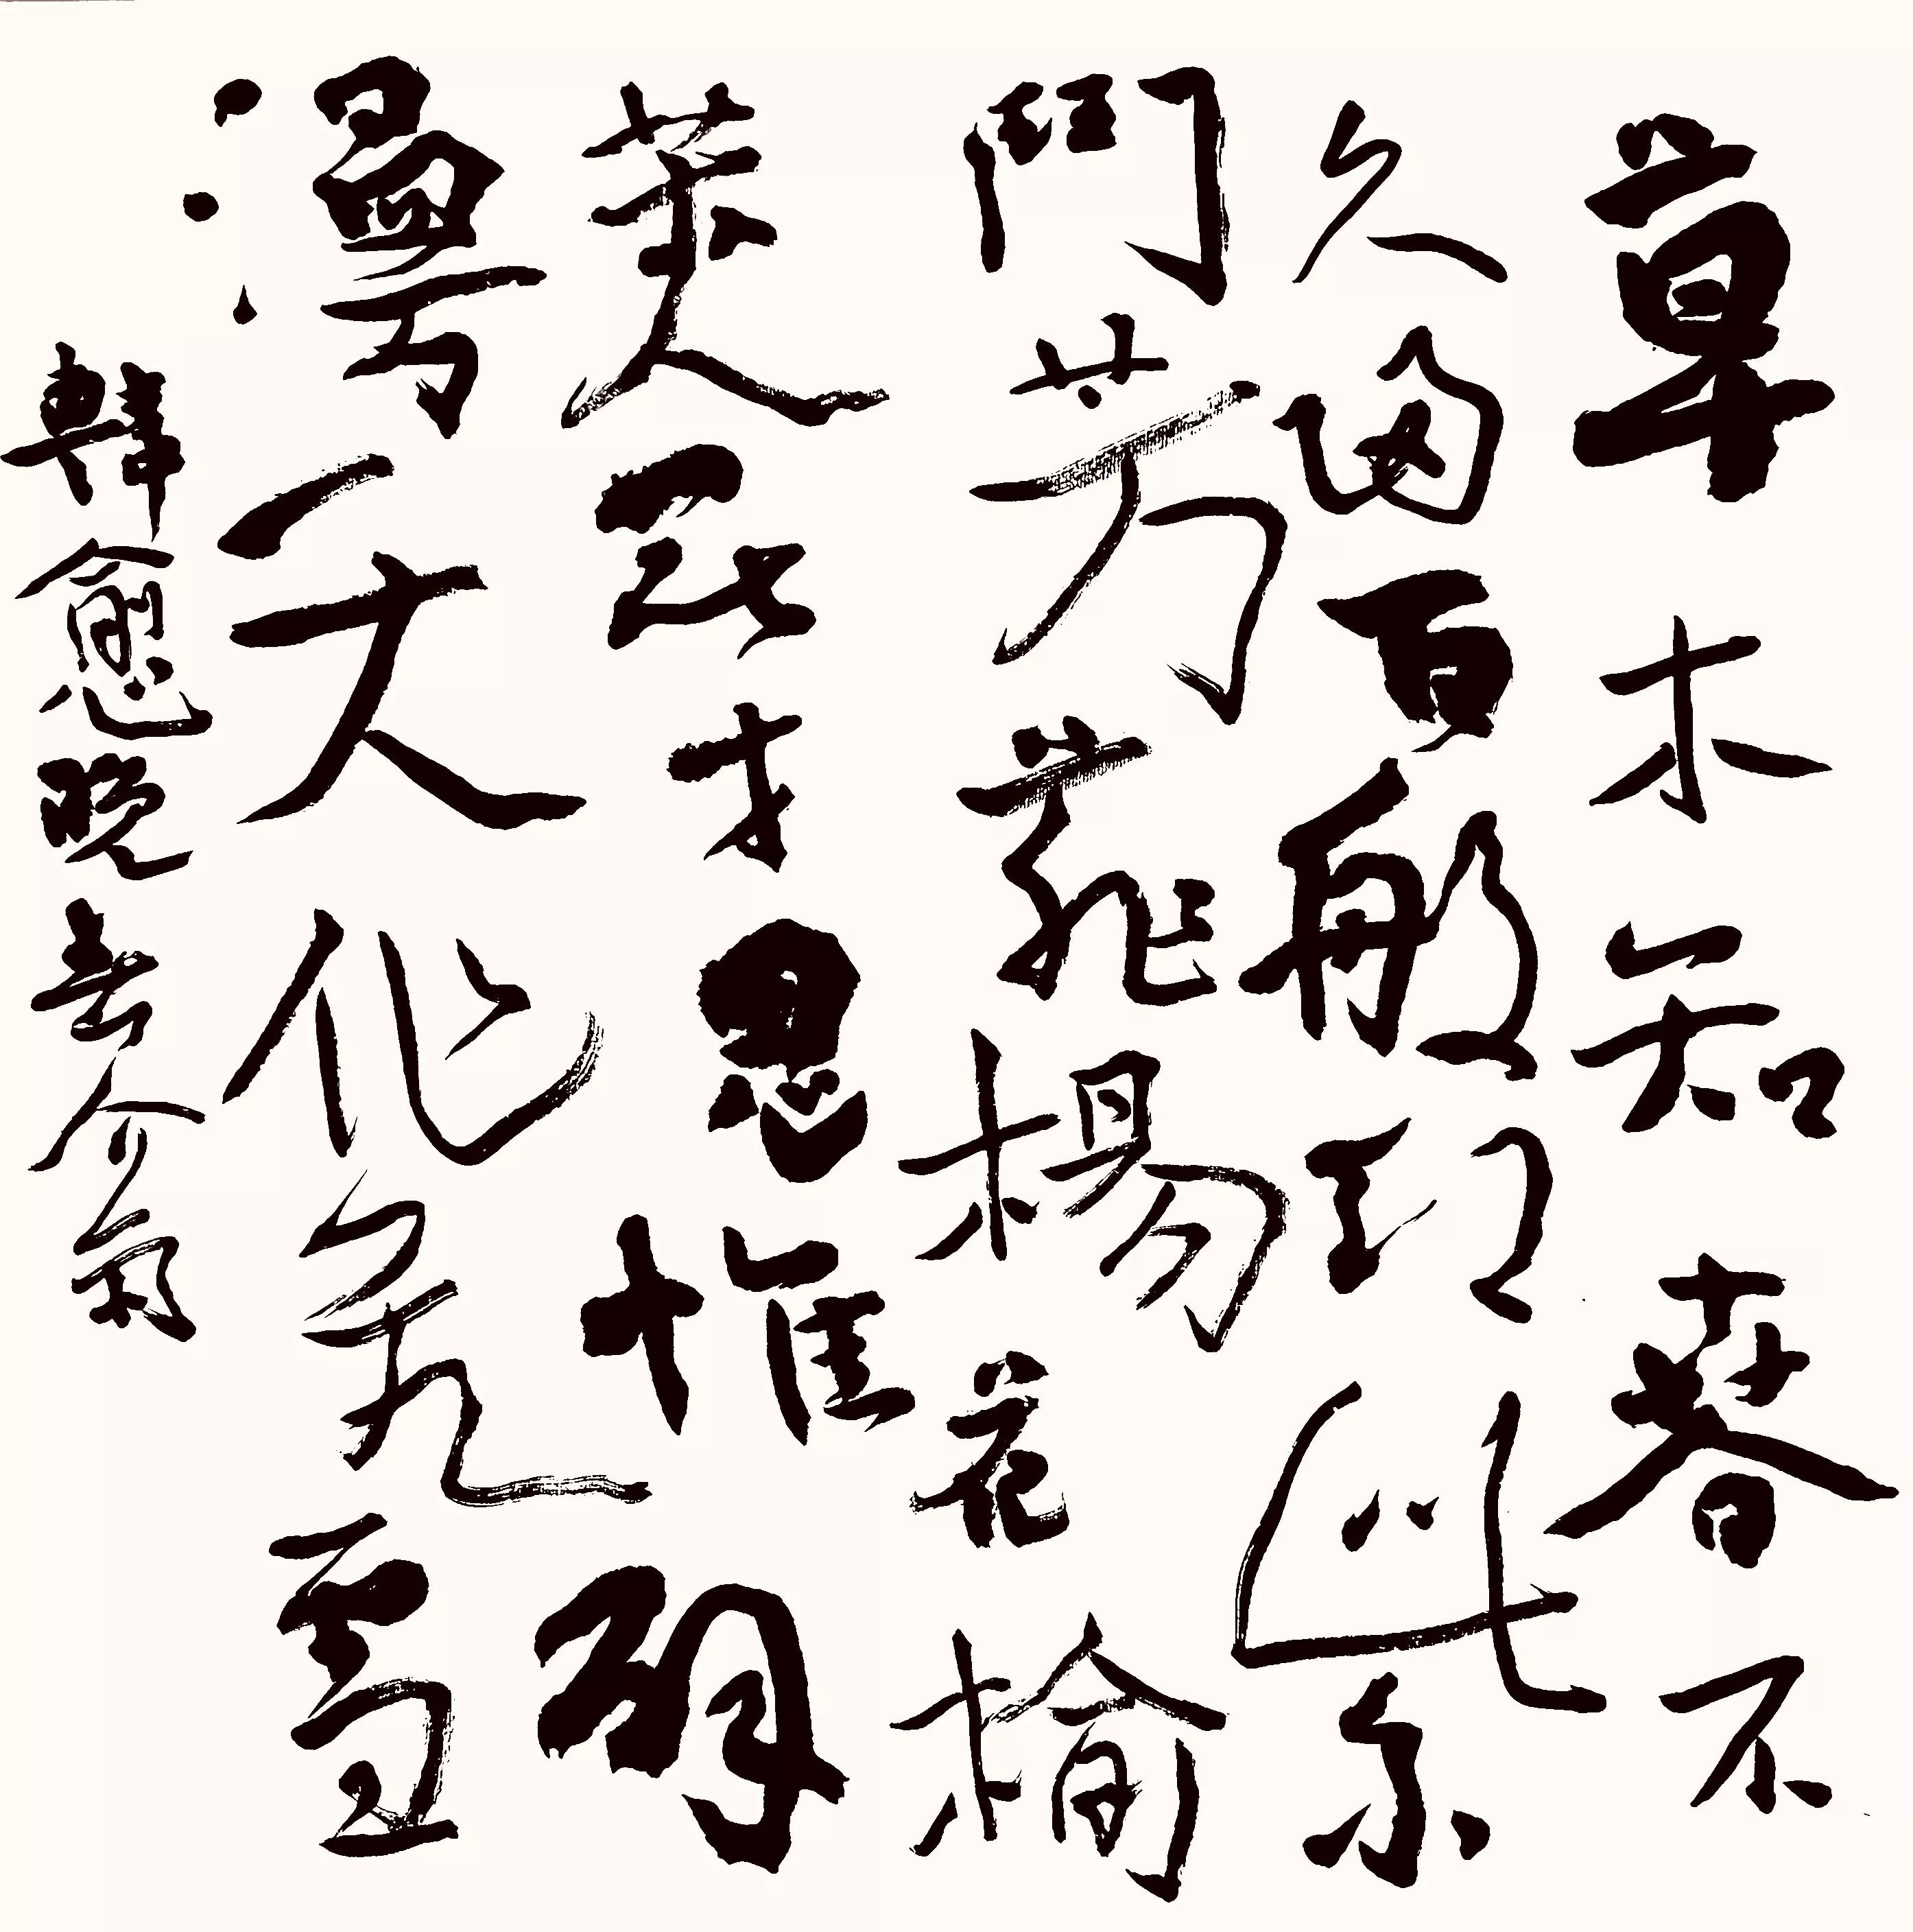 草木知春不
久歸百般紅紫
鬥芳菲楊花榆
莢無才思惟解
漫天作飛雪
韓愈晚春